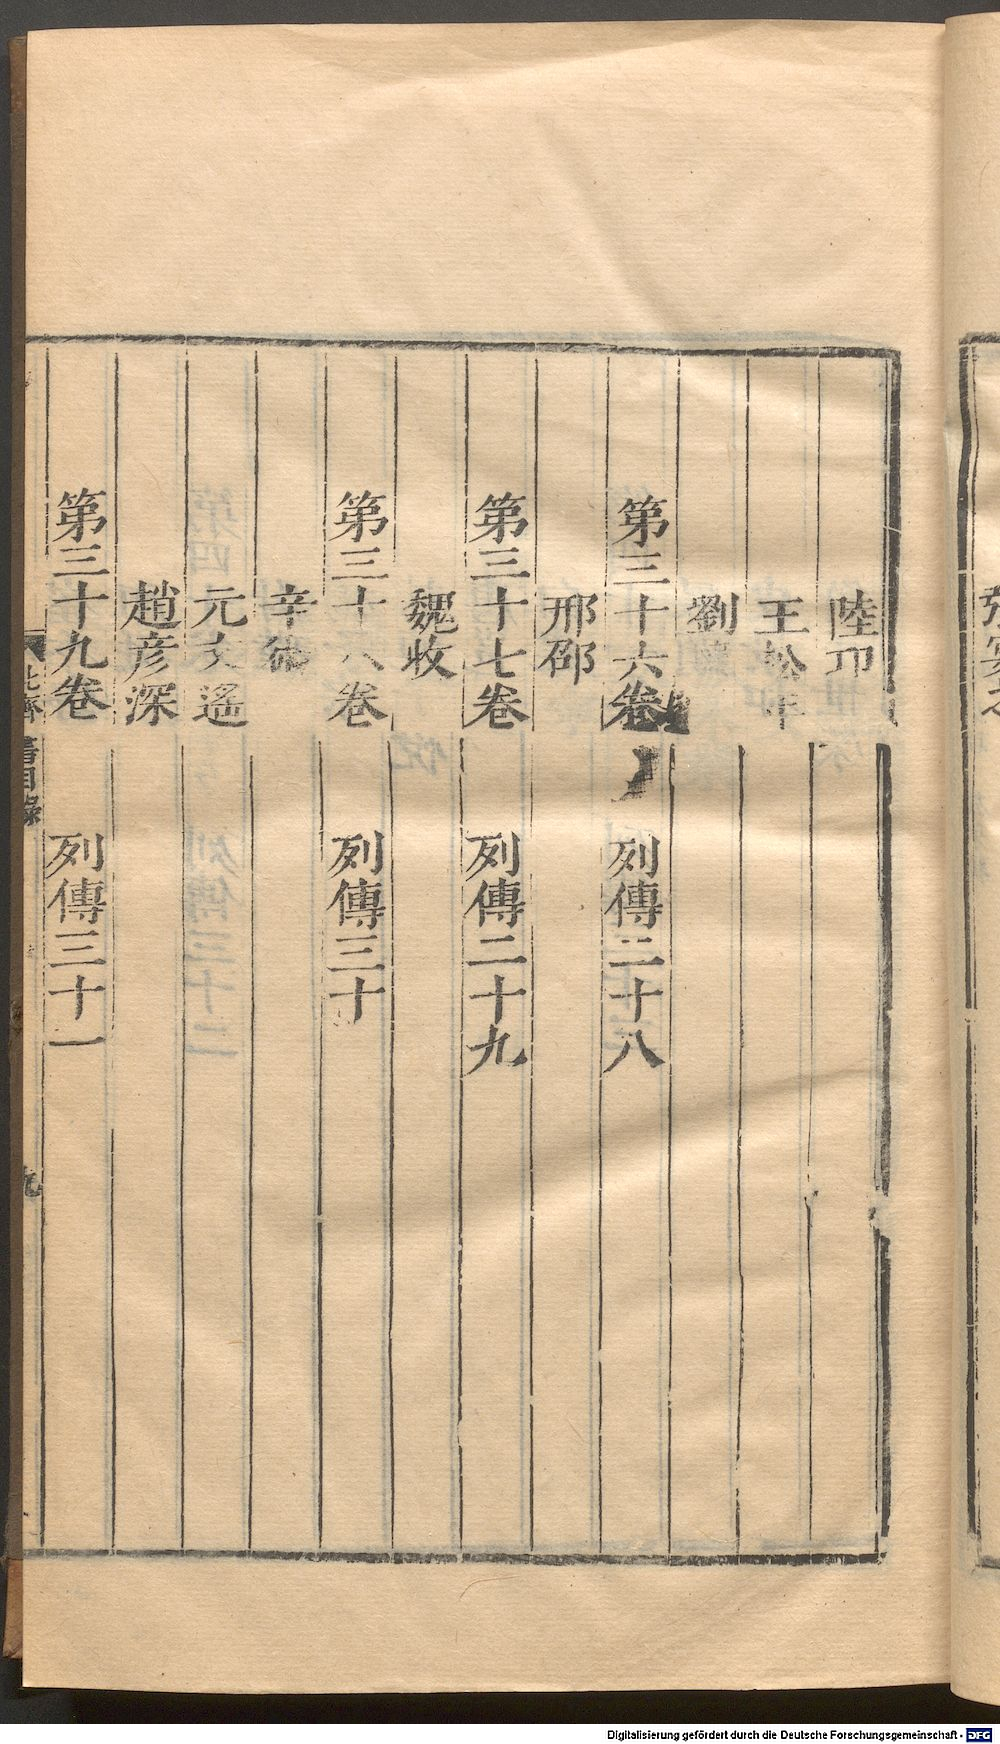 陸卬
王松年
劉
第三十六卷 列傳二十八
邢邵
第三十七卷 列傳二十九
魏收
第三十八卷 列傳三十
辛術
元文遙
趙彥深
第三十九卷 列傳三十一
北齊書目錄 九
Digitalisierung gefördert durch die Deutsche Forschungsgemeinschaft - DFG